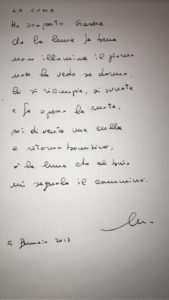 LA LUNA
Ho scoperto stasera
che la luna fa bene
non illumina il giorno
non la vedo se dormo,
la si riempie, si svuota
e fa spesso la ruota,
poi diventa una culla
e ritorno bambino,
è la luna che al buio
mi segnala il cammino.
5 Gennaio 2017